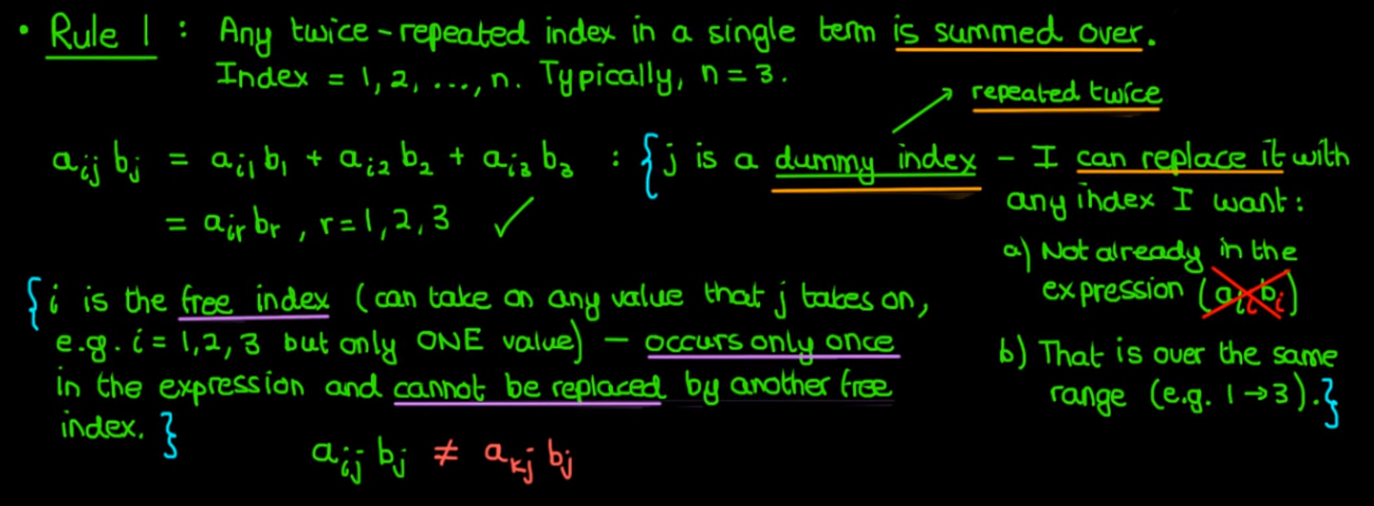 • Rule 1 : Any twice-repeated index in a single term is summed over.
Index = 1, 2, ..., n. Typically, n = 3.
repeated twice
a_{ij} b_j = a_{i1} b_1 + a_{i2} b_2 + a_{i3} b_3 : {j is a dummy index - I can replace it with
any index I want:
= a_{ir} b_r , r = 1, 2, 3 ✓
a) Not already in the
expression (a_{ii} b_i)
b) That is over the same
range (e.g. 1 → 3).}
{i is the free index (can take on any value that j takes on,
e.g. i = 1, 2, 3 but only ONE value) - occurs only once
in the expression and cannot be replaced by another free
index. }
a_{ij} b_j ≠ a_{kj} b_j